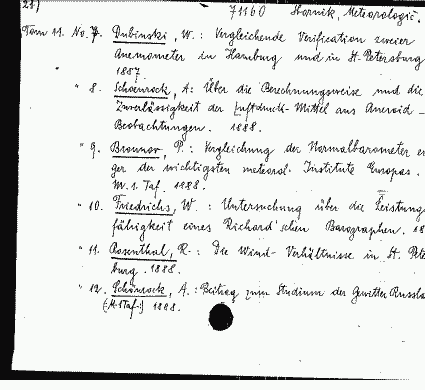 28) 71160 Sbornik, Meteorologič.
Tom 11. No. 7. Dubinski, W.: Vergleichende Verification zweier
Anemometer in Hamburg und in St. Petersburg
1887.
" 8. Schoenrock, A: Über die Berechnungsweise und die
Zuverlässigkeit der Luftdruck-Mittel aus Aneroid-
Beobachtungen. 1888.
" 9. Brounov, P.: Vergleichung der Normalbarometer ei
ger der wichtigsten meteorol. Institute Europas.
M. 1 Taf. 1888.
" 10. Friedrichs, W.: Untersuchung über die Leistungs
fähigkeit eines Richard'schen Barographen. 18
" 11. Rosenthal, R.: Die Wind-Verhältnisse in St. Pete
burg. 1888.
" 12. Schönrock, A.: Beitrag zum Studium der Gewitter Russla
(M. 1 Taf.) 1888.